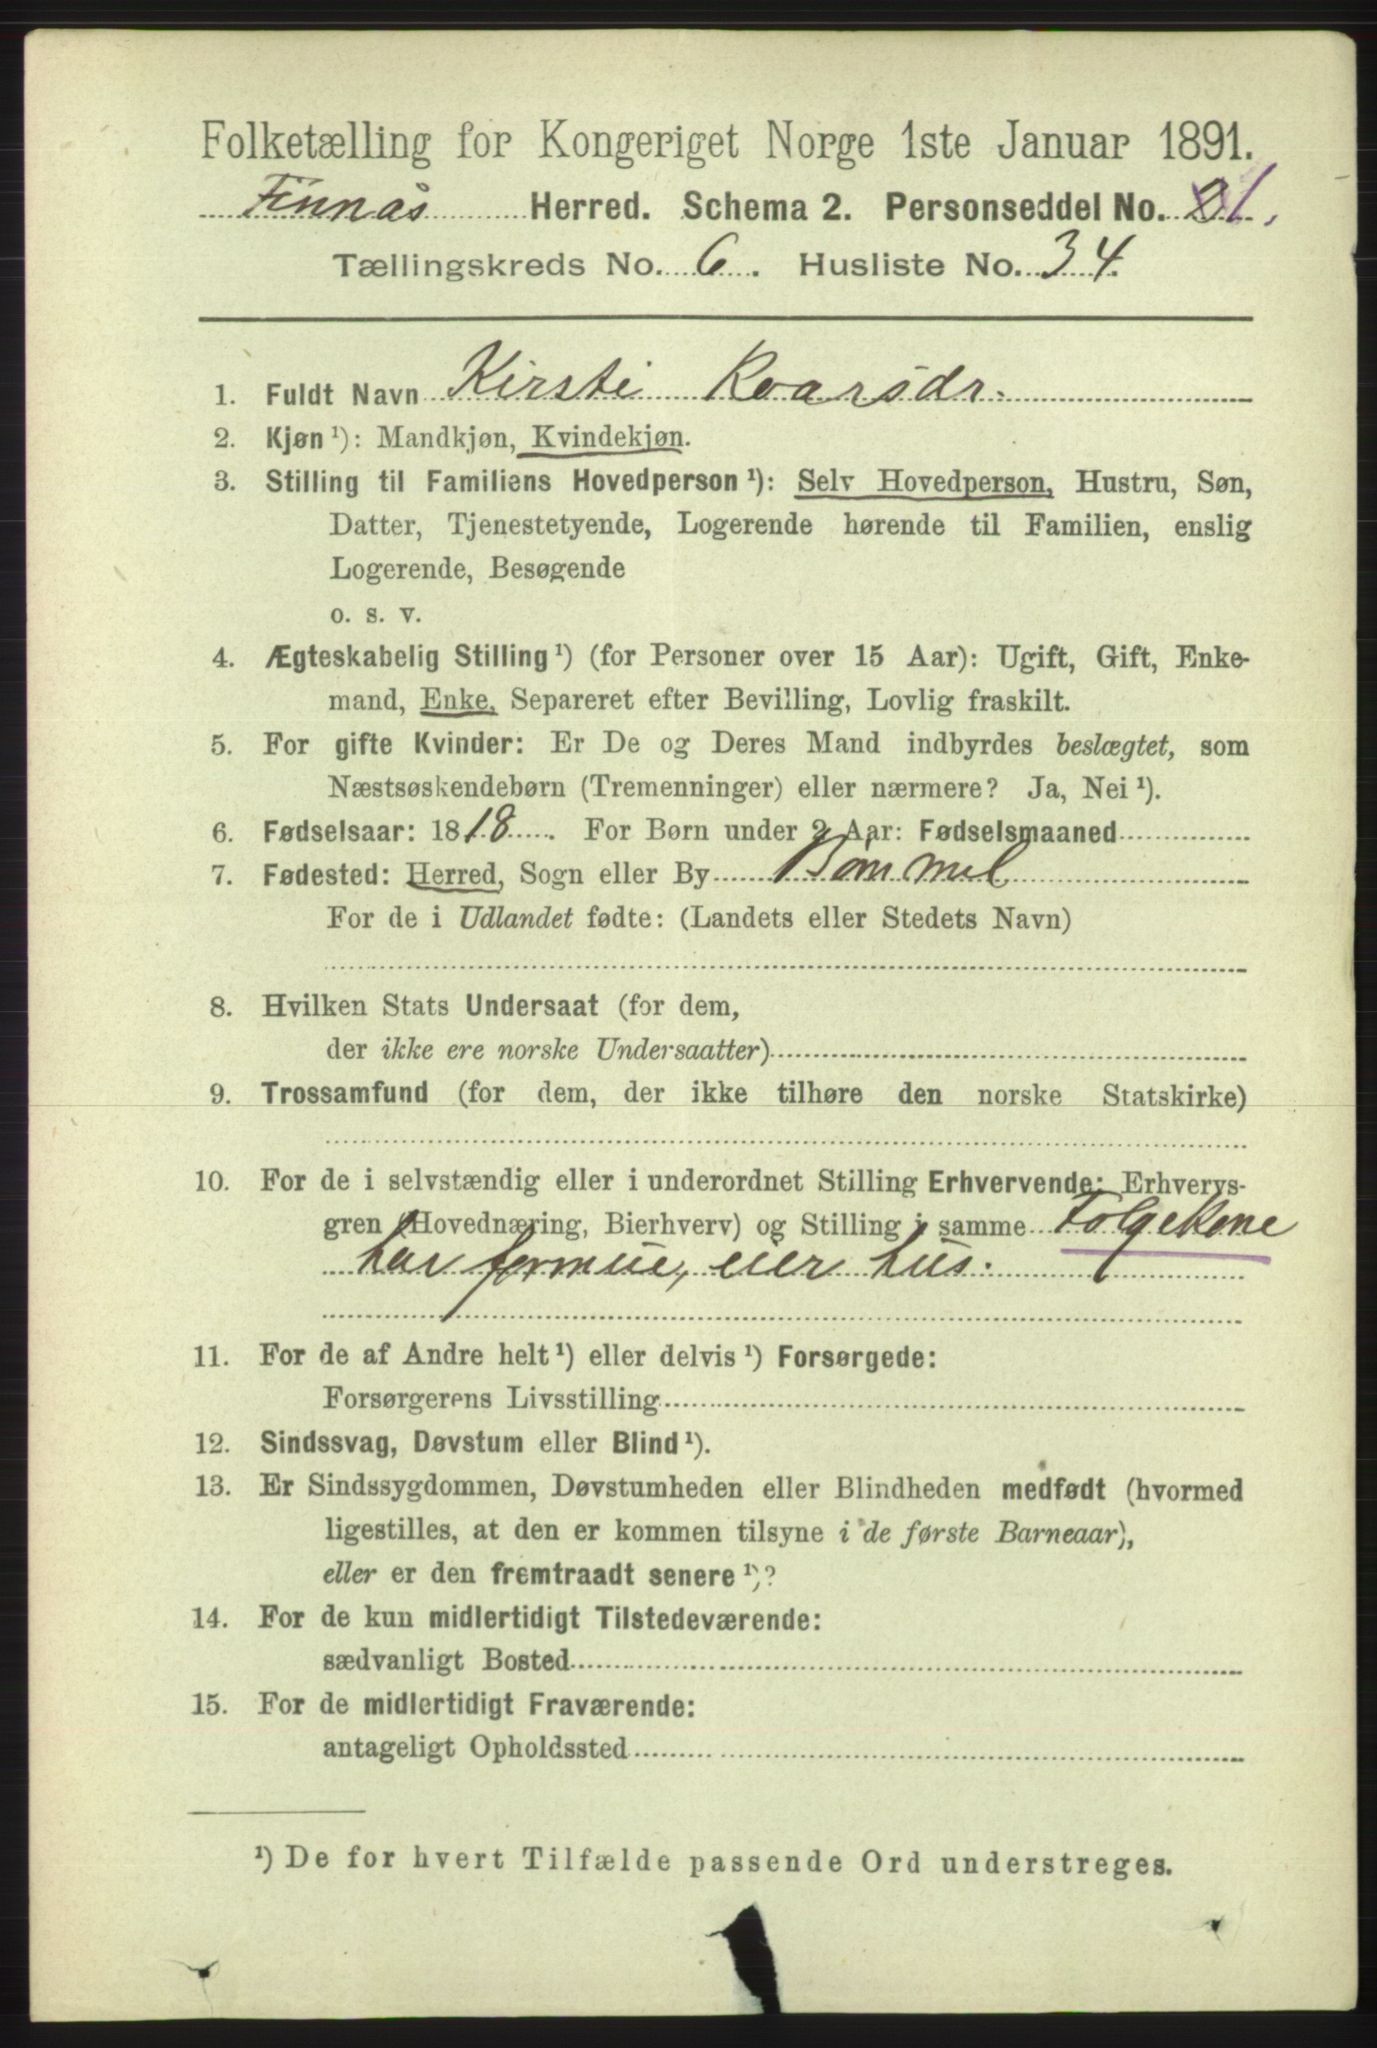 Folketælling for Kongeriget Norge 1ste Januar 1891.
Finnås Herred. Schema 2. Personseddel No. 1.
Tællingskreds No. 6. Husliste No. 34.
1. Fuldt Navn Kirsti Roarsdr.
2. Kjøn ¹): Mandkjøn, Kvindekjøn.
3. Stilling til Familiens Hovedperson ¹): Selv Hovedperson, Hustru, Søn,
Datter, Tjenestetyende, Logerende hørende til Familien, enslig
Logerende, Besøgende
o. s. v.
4. Ægteskabelig Stilling ¹) (for Personer over 15 Aar): Ugift, Gift, Enke-
mand, Enke, Separeret efter Bevilling, Lovlig fraskilt.
5. For gifte Kvinder: Er De og Deres Mand indbyrdes beslægtet, som
Næstsøskendebørn (Tremenninger) eller nærmere? Ja, Nei ¹).
6. Fødselsaar: 1818. For Børn under 2 Aar: Fødselsmaaned
7. Fødested: Herred, Sogn eller By Bømmel
For de i Udlandet fødte: (Landets eller Stedets Navn)
8. Hvilken Stats Undersaat (for dem,
der ikke ere norske Undersaatter)
9. Trossamfund (for dem, der ikke tilhøre den norske Statskirke)
10. For de i selvstændig eller i underordnet Stilling Erhvervende: Erhvervs-
gren (Hovednæring, Bierhverv) og Stilling i samme Folgekone
har formue, eier hus.
11. For de af Andre helt ¹) eller delvis ¹) Forsørgede:
Forsørgerens Livsstilling
12. Sindssvag, Døvstum eller Blind ¹).
13. Er Sindssygdommen, Døvstumheden eller Blindheden medfødt (hvormed
ligestilles, at den er kommen tilsyne i de første Barneaar),
eller er den fremtraadt senere ¹)?
14. For de kun midlertidigt Tilstedeværende:
sædvanligt Bosted
15. For de midlertidigt Fraværende:
antageligt Opholdssted
¹) De for hvert Tilfælde passende Ord understreges.